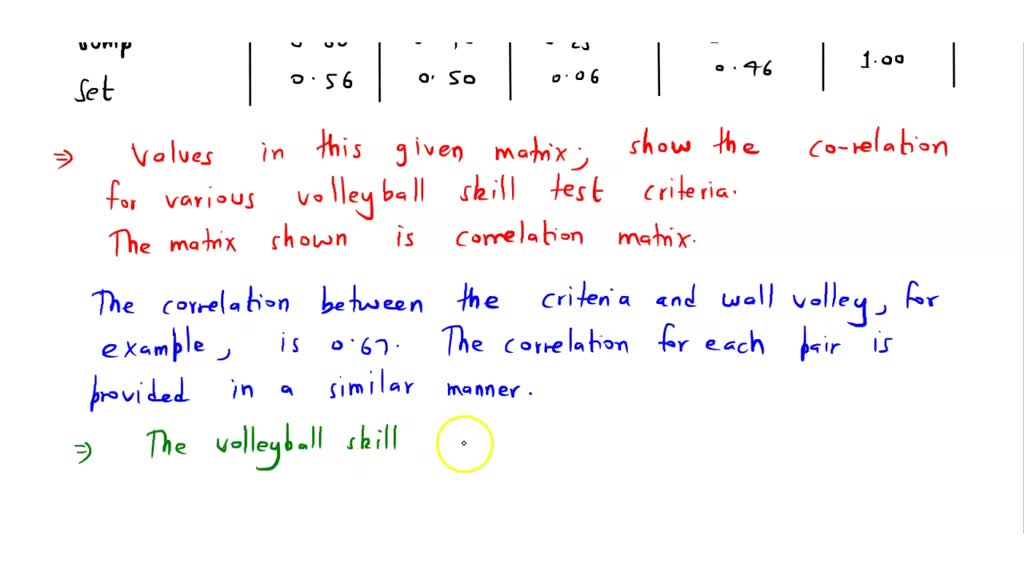 Set 0.56 0.50 0.06 0.46 1.00
⇒ Values in this given matrix, show the co-relation
for various volleyball skill test criteria.
The matrix shown is correlation matrix.
The correlation between the criteria and wall volley, for
example, is 0.67. The correlation for each pair is
provided in a similar manner.
⇒ The volleyball skill